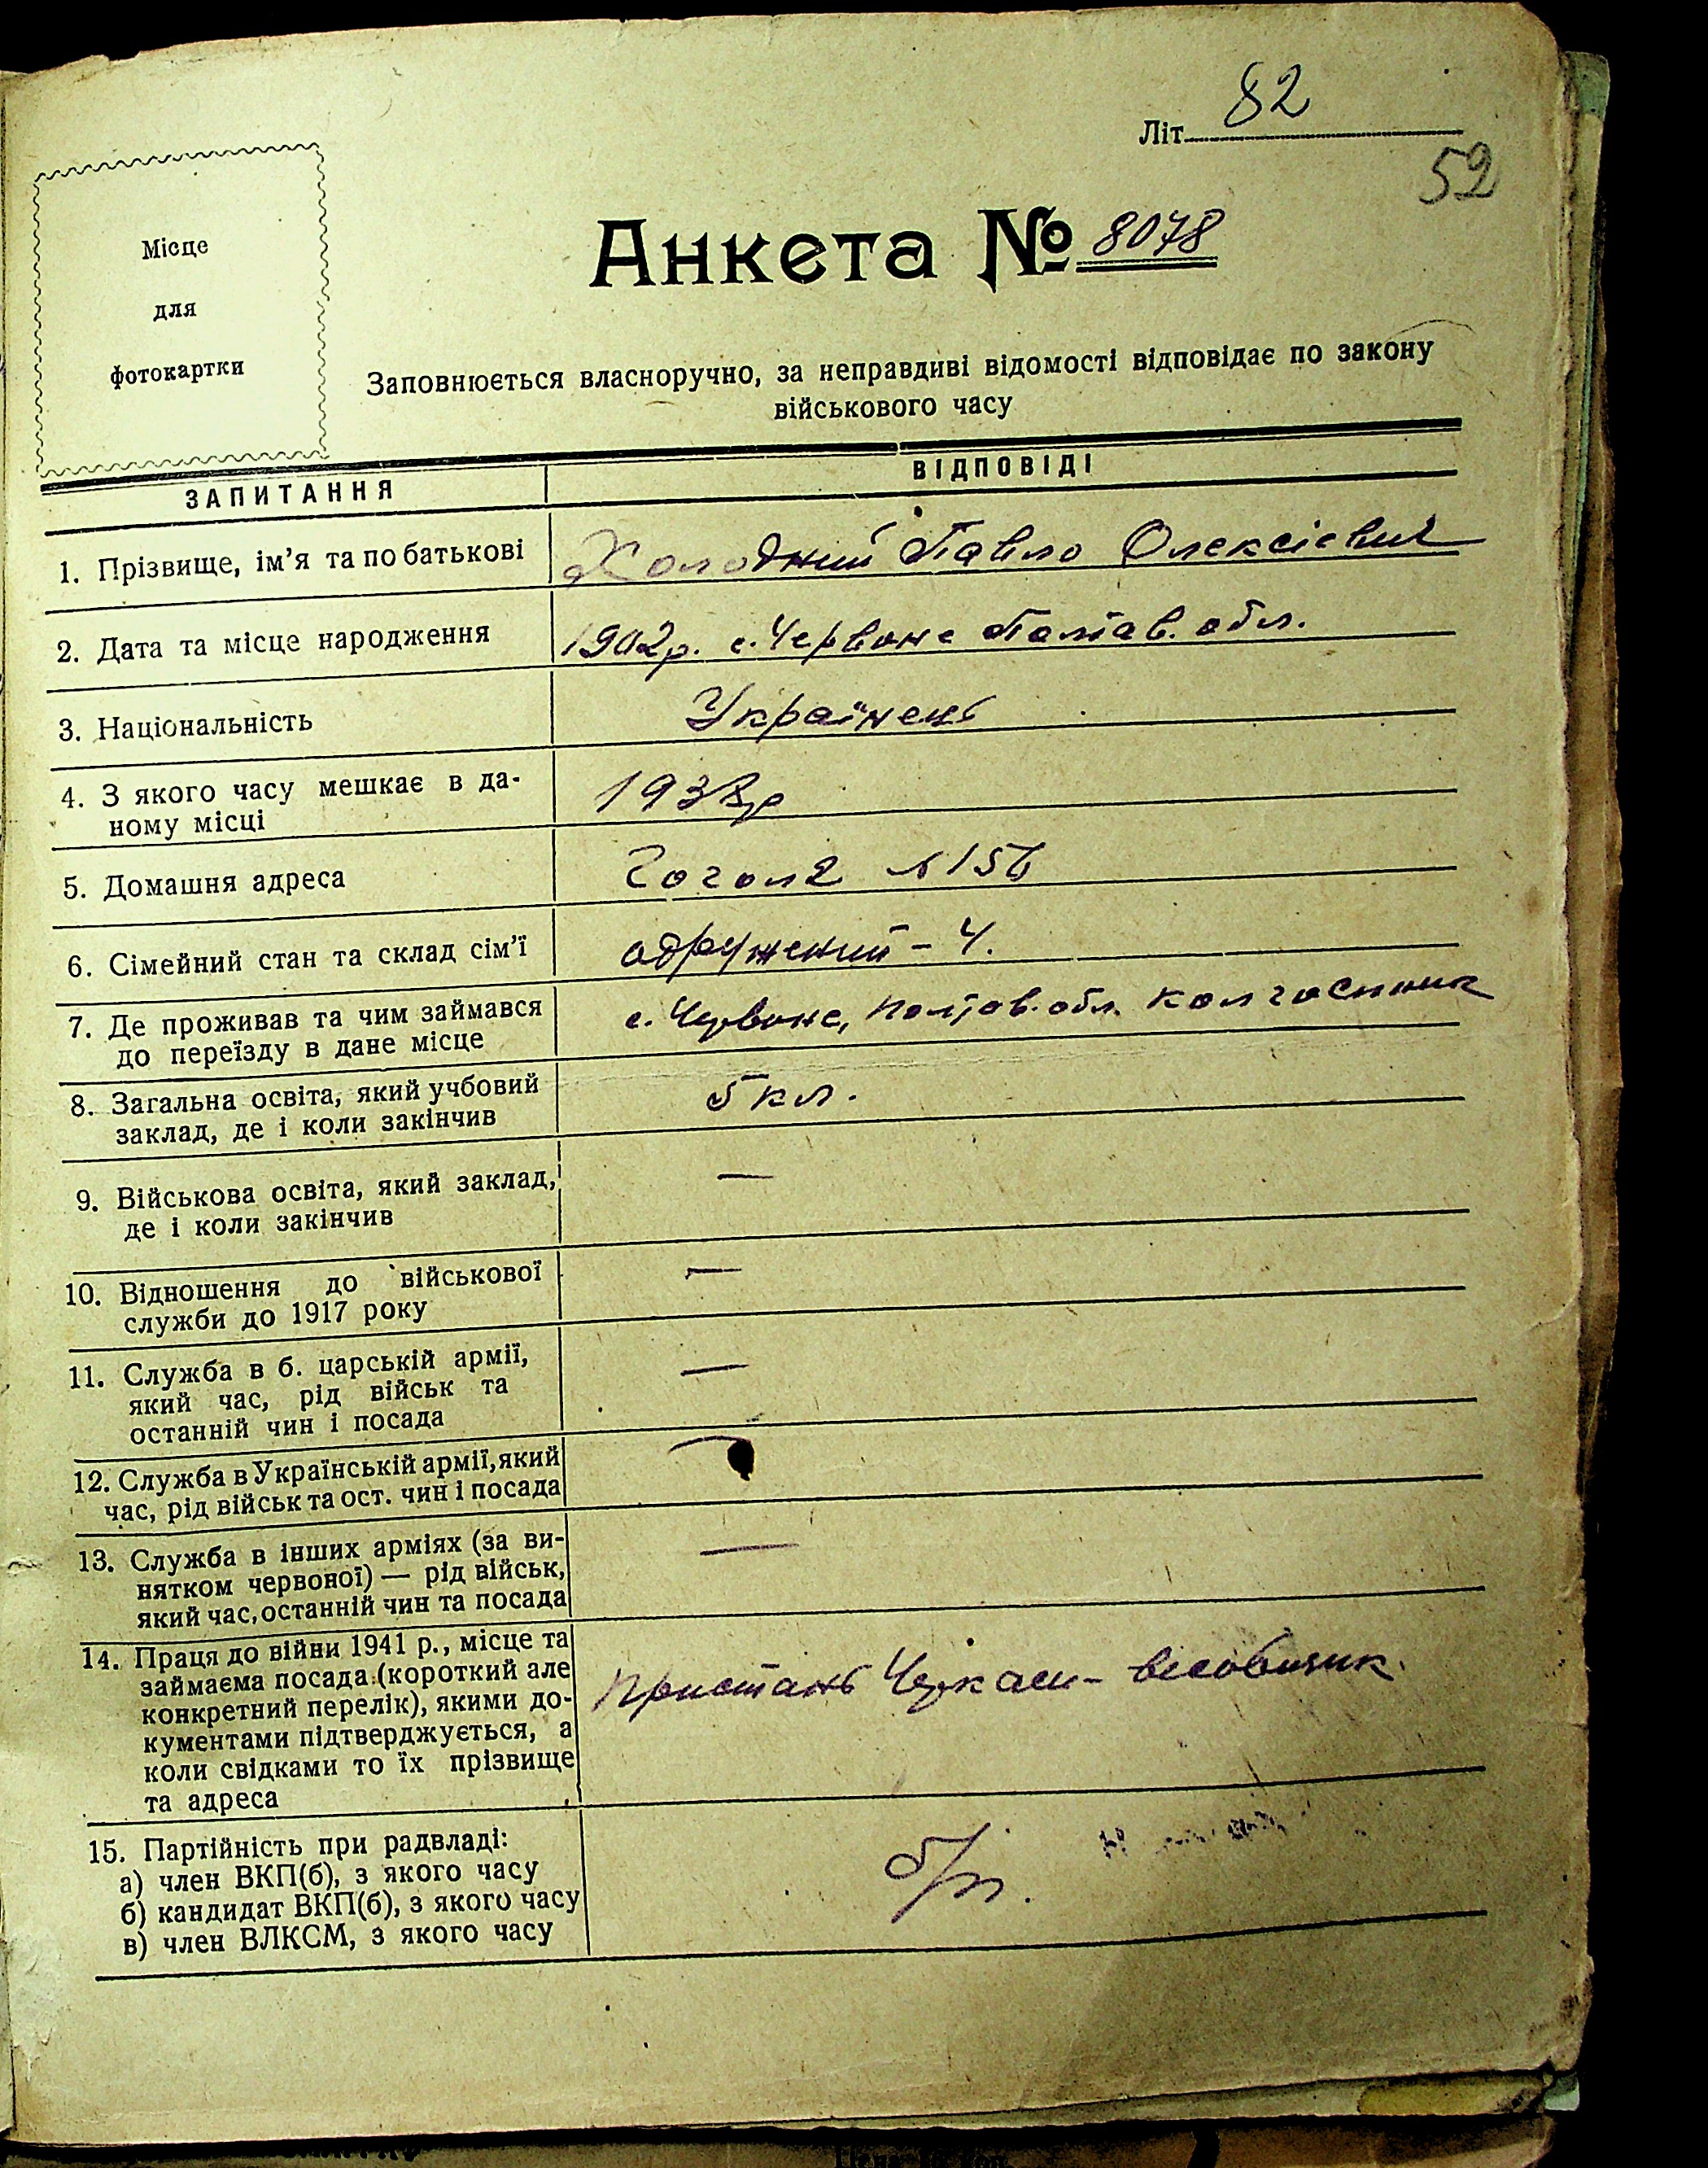 Літ. 82
52
Місце
для
фотокартки
Анкета № 8078
Заповнюється власноручно, за неправдиві відомості відповідає по закону
військового часу
ЗАПИТАННЯ ВІДПОВІДІ
1. Прізвище, ім'я та по батькові Холодний Павло Олексієвич
2. Дата та місце народження 1902р. с. Червоне Полтав. обл.
3. Національність Українець
4. З якого часу мешкає в да-
ному місці 1938р
5. Домашня адреса Гоголя №156
6. Сімейний стан та склад сім'ї одружений – 4.
7. Де проживав та чим займався
до переїзду в дане місце с. Червоне, Полтав. обл. колгоспник
8. Загальна освіта, який учбовий
заклад, де і коли закінчив 5 кл.
9. Військова освіта, який заклад,
де і коли закінчив —
10. Відношення до військової
служби до 1917 року —
11. Служба в б. царській армії,
який час, рід військ та
останній чин і посада —
12. Служба в Українській армії, який
час, рід військ та ост. чин і посада —
13. Служба в інших арміях (за ви-
нятком червоної) — рід військ,
який час, останній чин та посада —
14. Праця до війни 1941 р., місце та
займаєма посада (короткий але
конкретний перелік), якими до-
кументами підтверджується, а
коли свідками то їх прізвище
та адреса
Пристань Черкаси –
15. Партійність при радвладі:
а) член ВКП(б), з якого часу
б) кандидат ВКП(б), з якого часу
в) член ВЛКСМ, з якого часу
б/п.